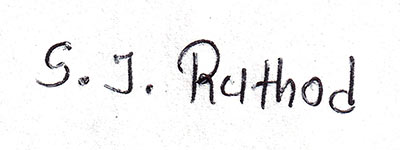 S. J. Rathod